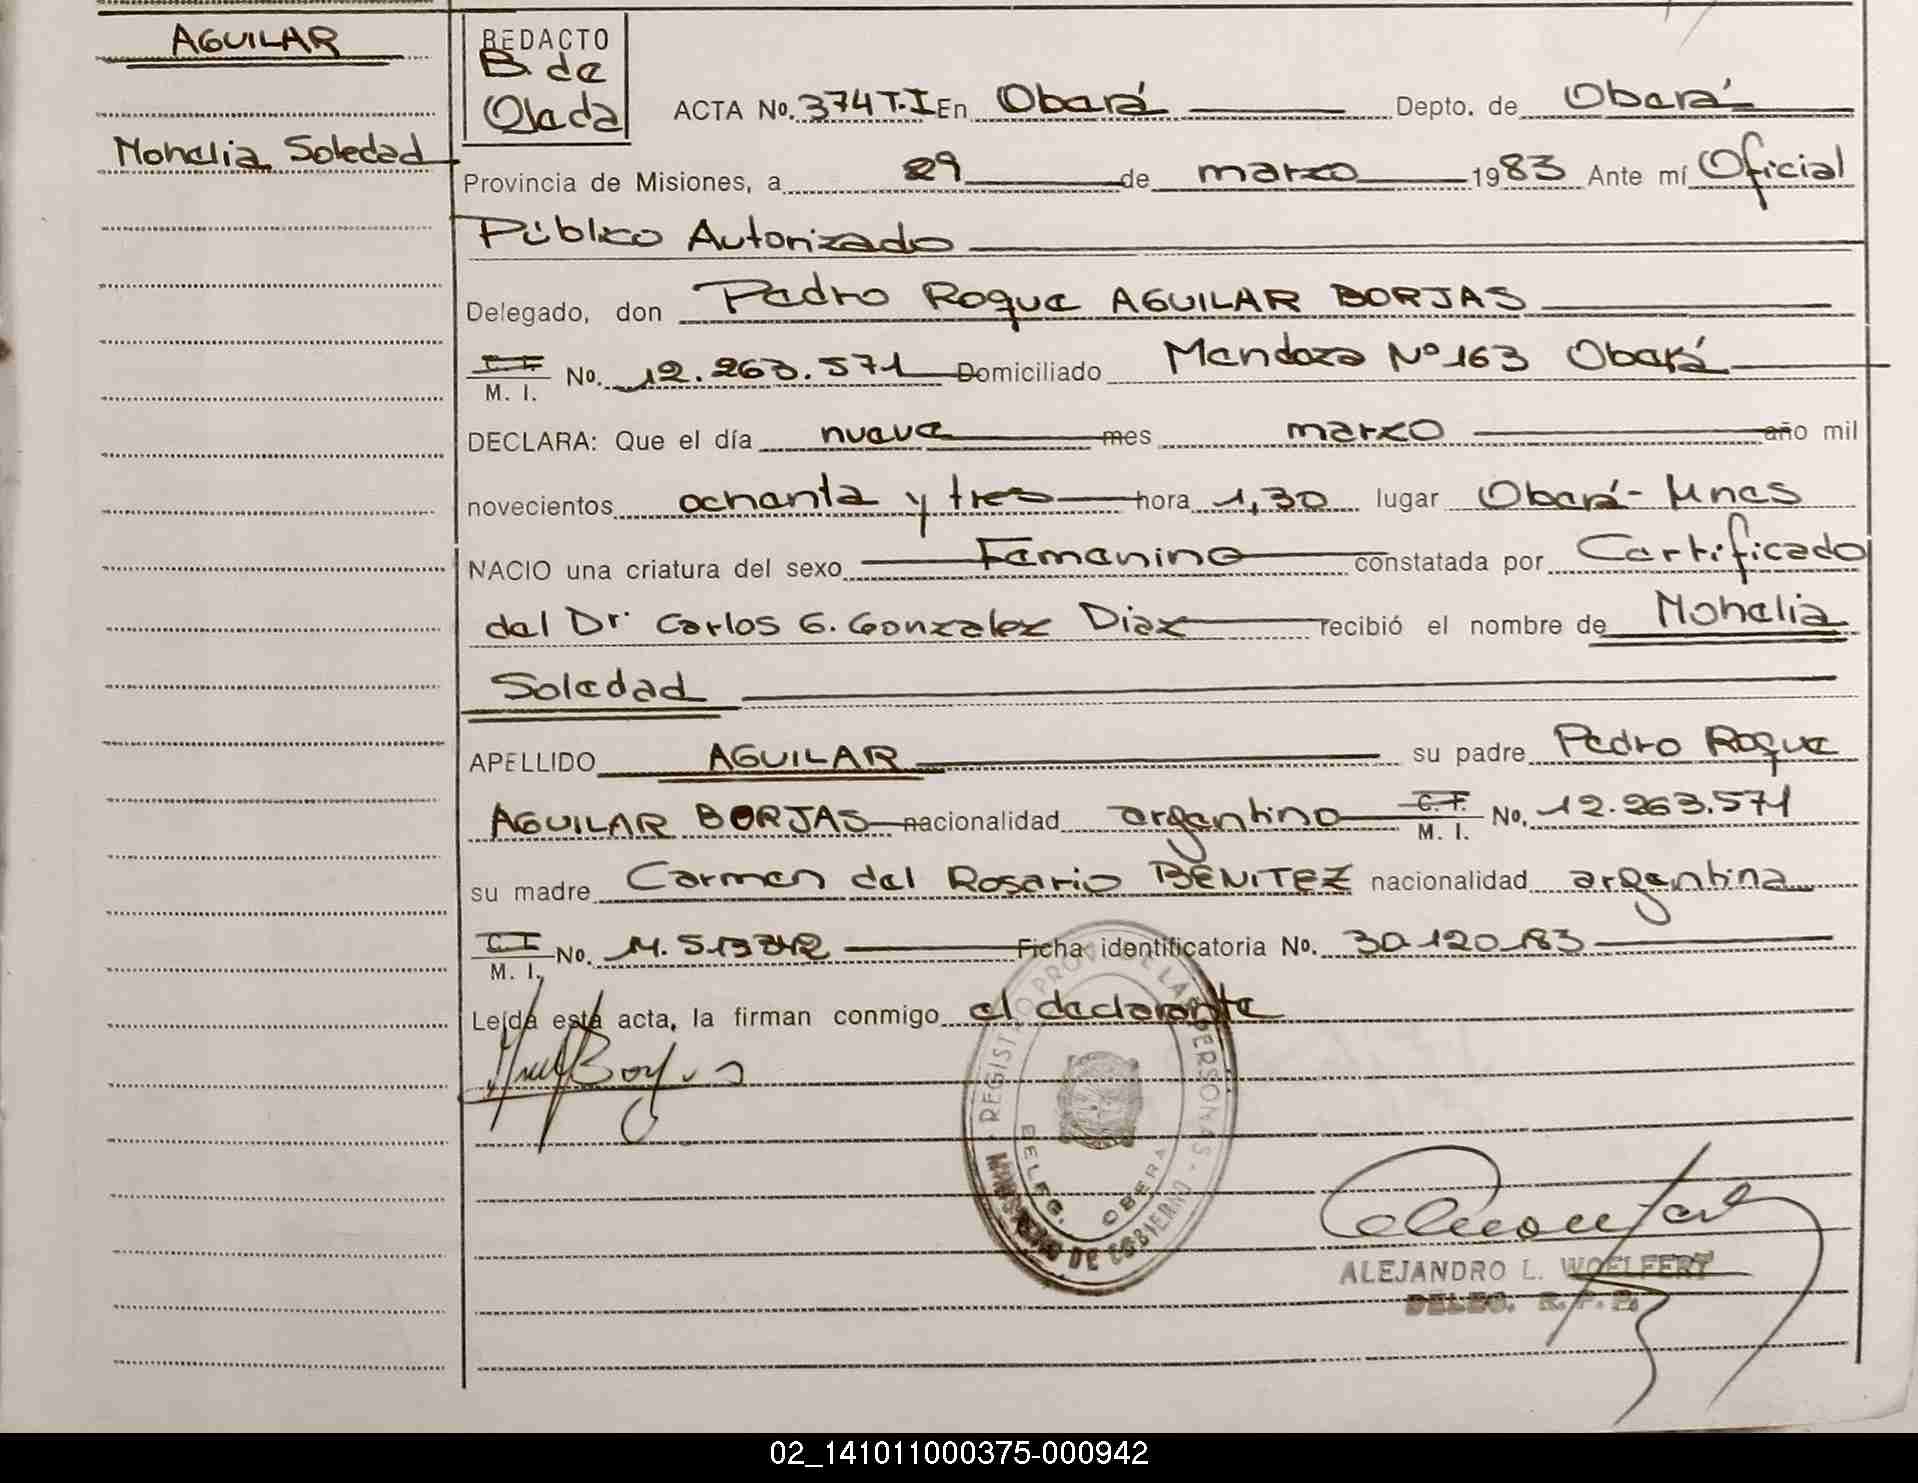 AGUILAR
Nohelia Soledad
REDACTO
B. de
Olada
ACTA No. 374 T.I En Oberá Depto. de Oberá
Provincia de Misiones, a 29 de marzo 1983 Ante mí Oficial
Público Autorizado
Delegado, don Pedro Roque AGUILAR BORJAS
C.I.
M. I. No. 12.263.571 Domiciliado Mendoza Nº 163 Oberá
DECLARA: Que el día nueve mes marzo año mil
novecientos ochenta y tres hora 1,30 lugar Oberá - Mnes
NACIO una criatura del sexo Femenino constatada por Certificado
del Dr. Carlos G. Gonzalez Diaz recibió el nombre de Nohelia
Soledad
APELLIDO AGUILAR su padre Pedro Roque
AGUILAR BORJAS nacionalidad argentino C.I. M. I. No. 12.263.571
su madre Carmen del Rosario BENITEZ nacionalidad argentina
C.I.
M. I. No. 14.513342 Ficha identificatoria No. 30.120.183
Leída esta acta, la firman conmigo el declarante
REGISTRO PROV. DE LAS PERSONAS
DELEG. OBERA
MINISTERIO DE GOBIERNO
ALEJANDRO L. WOELFERT
DELEG. R. P. P.
02_141011000375-000942